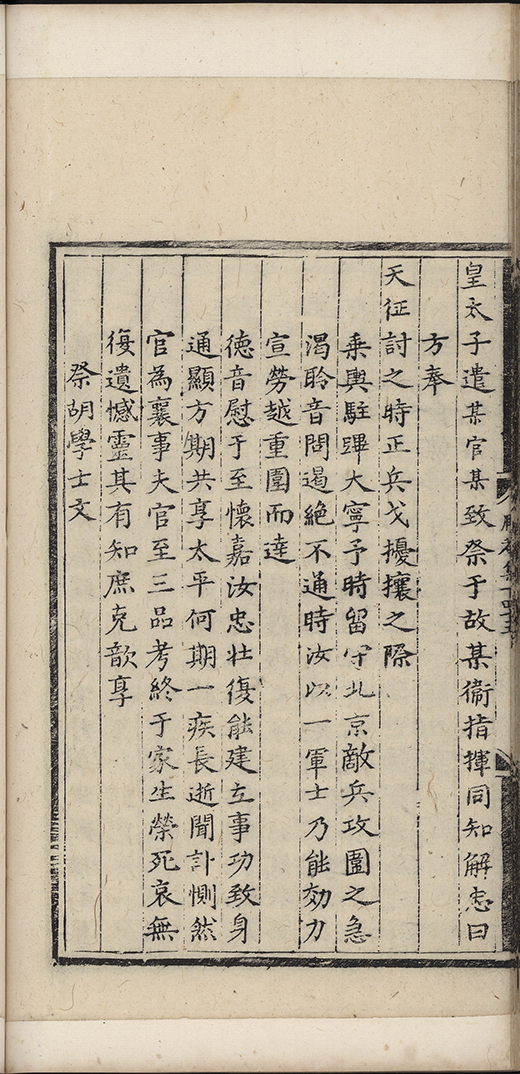 皇太子遣某官某致祭于故某衞指揮同知解忠曰
方奉
天征討之時正兵戈擾攘之際
乗輿駐蹕大寧予時留守北京敵兵攻圍之急
渴聆音問遏絶不通時汝以一軍士乃能効力
宣勞越重圍而達
德音慰予至懷嘉汝忠壮復能建立事功致身
通顯方期共享太平何期一疾長逝聞訃惻然
官為襄事夫官至三品考終于家生榮死哀無
復遺憾靈其有知庶克歆享
祭胡學士文